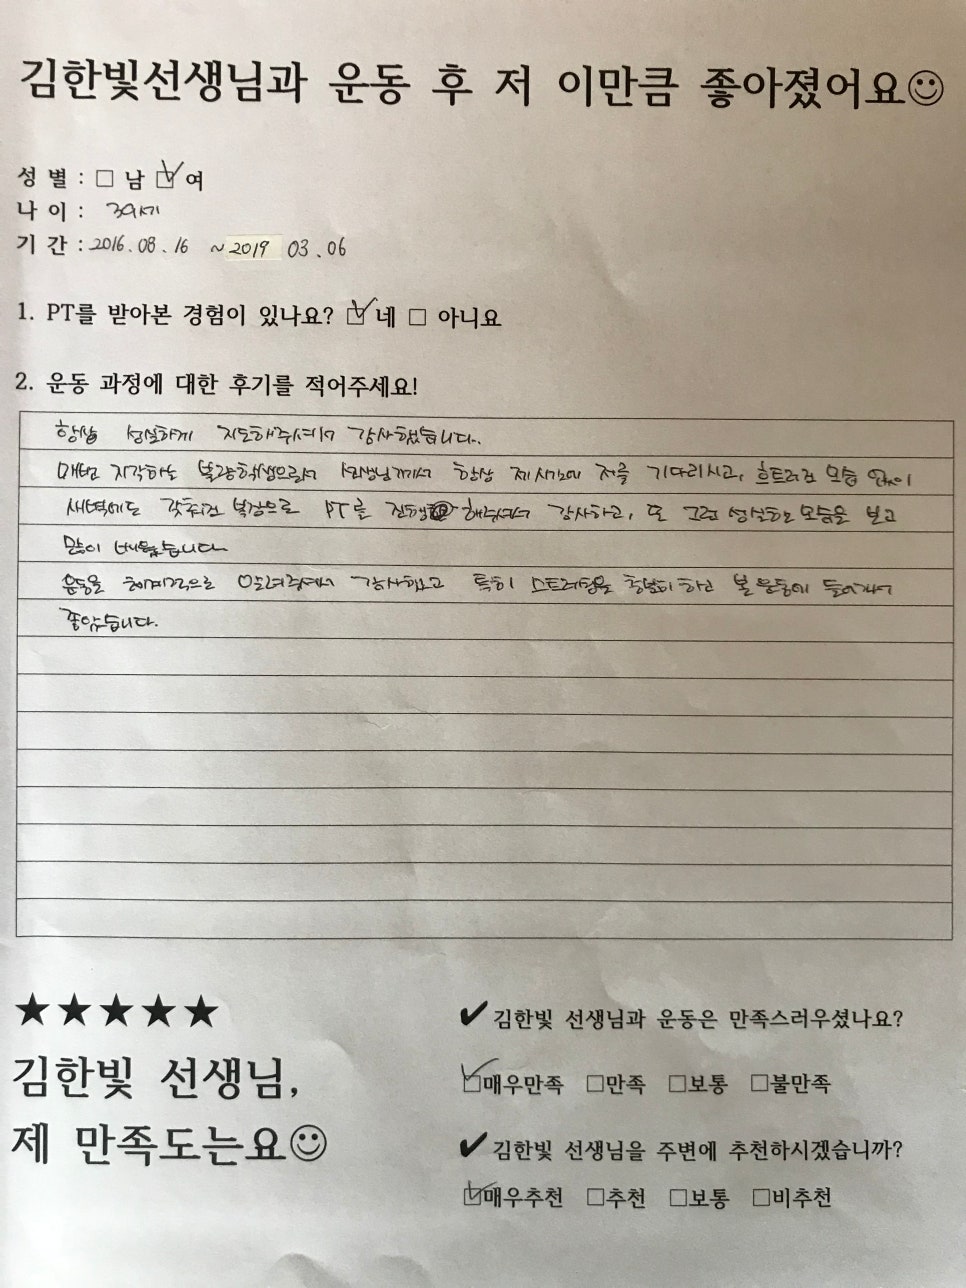 김한빛선생님과 운동 후 저 이만큼 좋아졌어요☺
성 별 : □ 남 ☑ 여
나 이 : 39세
기 간 : 2016.08.16 ~ 2019 03.06
1. PT를 받아본 경험이 있나요? ☑ 네 □ 아니요
2. 운동 과정에 대한 후기를 적어주세요!
항상 성실하게 지도해주셔서 감사했습니다.
매번 지각하는 불량학생으로서 선생님께서 항상 제시간에 저를 기다리시고, 흐트러진 모습 없이
새벽에도 갖춰진 복장으로 PT를 진행 해주셔서 감사하고, 또 그런 성실한 모습을 보고
많이 배웠습니다
운동을 체계적으로 알려주셔서 감사했고 특히 스트레칭을 충분히 하고 본 운동에 들어가서
좋았습니다.
★★★★★
김한빛 선생님,
제 만족도는요☺
✔ 김한빛 선생님과 운동은 만족스러우셨나요?
☑매우만족 □만족 □보통 □불만족
✔ 김한빛 선생님을 주변에 추천하시겠습니까?
☑매우추천 □추천 □보통 □비추천